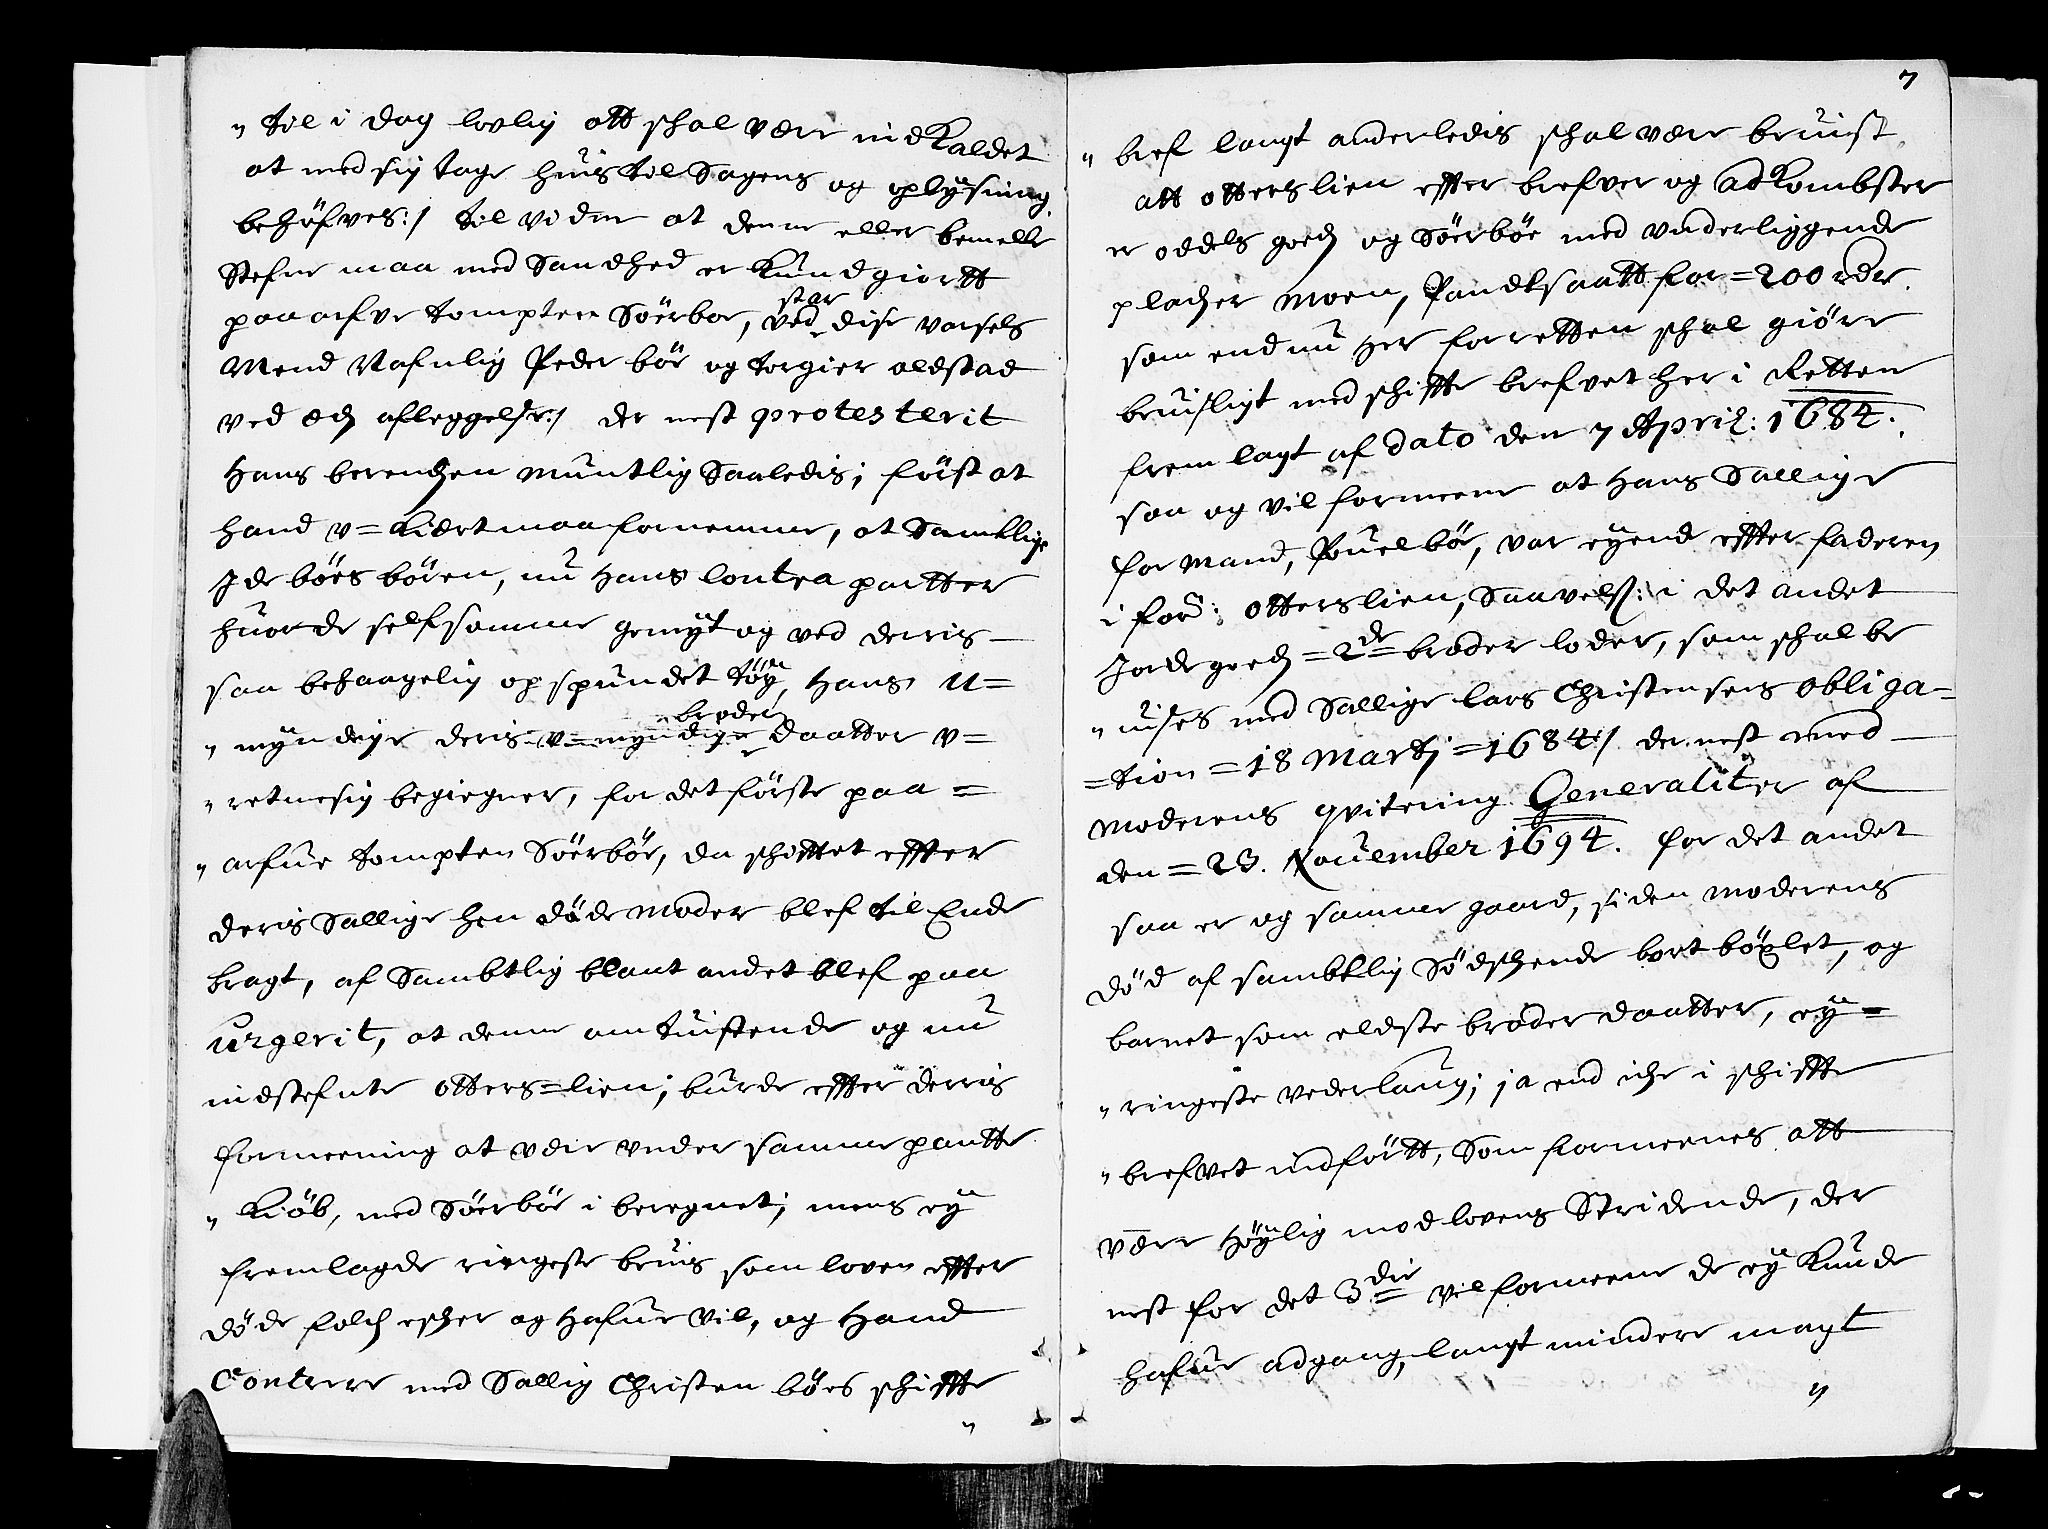 " til i dag lovlig att schal være indkaldet
at med sig tage huis til Sagens og oplysning
behöfves:/ til viden at denne eller bemelte
Stefne maa med Sandhed er kundgiortt
paa arfve tompten Söerbøe, ved star dise varsels
Mend Nafnlig Peder bör og torgier oldstad
ved æd afleggelse:/ der nest protesterit
Hans berendsen muntlig Saaledis; först at
hand v=kiært maa fornemme, at Samtlige
Ide böes bören, nu Hans Contra partter
huor de self samme gemyt og ved derris
saa behaagelig opspundet töy, Hans u=
" myndige deris v=myndige broder daatter v=
" retmesig begiegner, for det förste paa =
" arfue tompten Söerböe, da schifftet effter
deris Sallige hen döde moder blef til Ende
bragt, af Sambtlig blant andet blef paa
urgerit, at denne omtuistende og nu
indstefnte otters=lien; burde effter derris
formeening at være under samme pantte
" kiöb, med Söerböe i beregnet; mens ey
fremlagde ringeste beuis som loven effter
döde folch esker og hafue vil, og Hand
Contrere med Sallig Christen böes schiffte
"
7
" bref langt anderledis schal være beuist,
att otterslien effter brefver og adkombster
er oddels goeds og Söerböe med underliggende
pladser Moen, Pandtsaatt for = 200 rdr.
som endnu her for retten schal giöre
beuisligt med schiffte brefvet her i Retten
fremlagt af dato den 7 April: 1684.
saa og vil formeene at Hans Sallige
formand, Pouel böe, var eyende effter faderen
i for: otterslien, Saavels: i det andet
Jorde goeds = 2de = broder loder, som schal be
" uises med Sallige lars Christensens obliga=
=tion = 18 Martj = 1684:/ der nest med
moderens qvitering Generaliter af
den = 23. Nouember 1694. for det andet
saa er og samme gaard, siden moderens
död af sambtlig Södschende bort böxlet, og
barnet som eldste broder daatter, ey=
" ringeste vederlaug; ja end iche i schiffte
" brefvet indfört, Som formeenes att
være höylig mod lovens Stridende, der
nest for det 3die vil formeene de ey kunde
hafue adgang, langt mindere magt
"